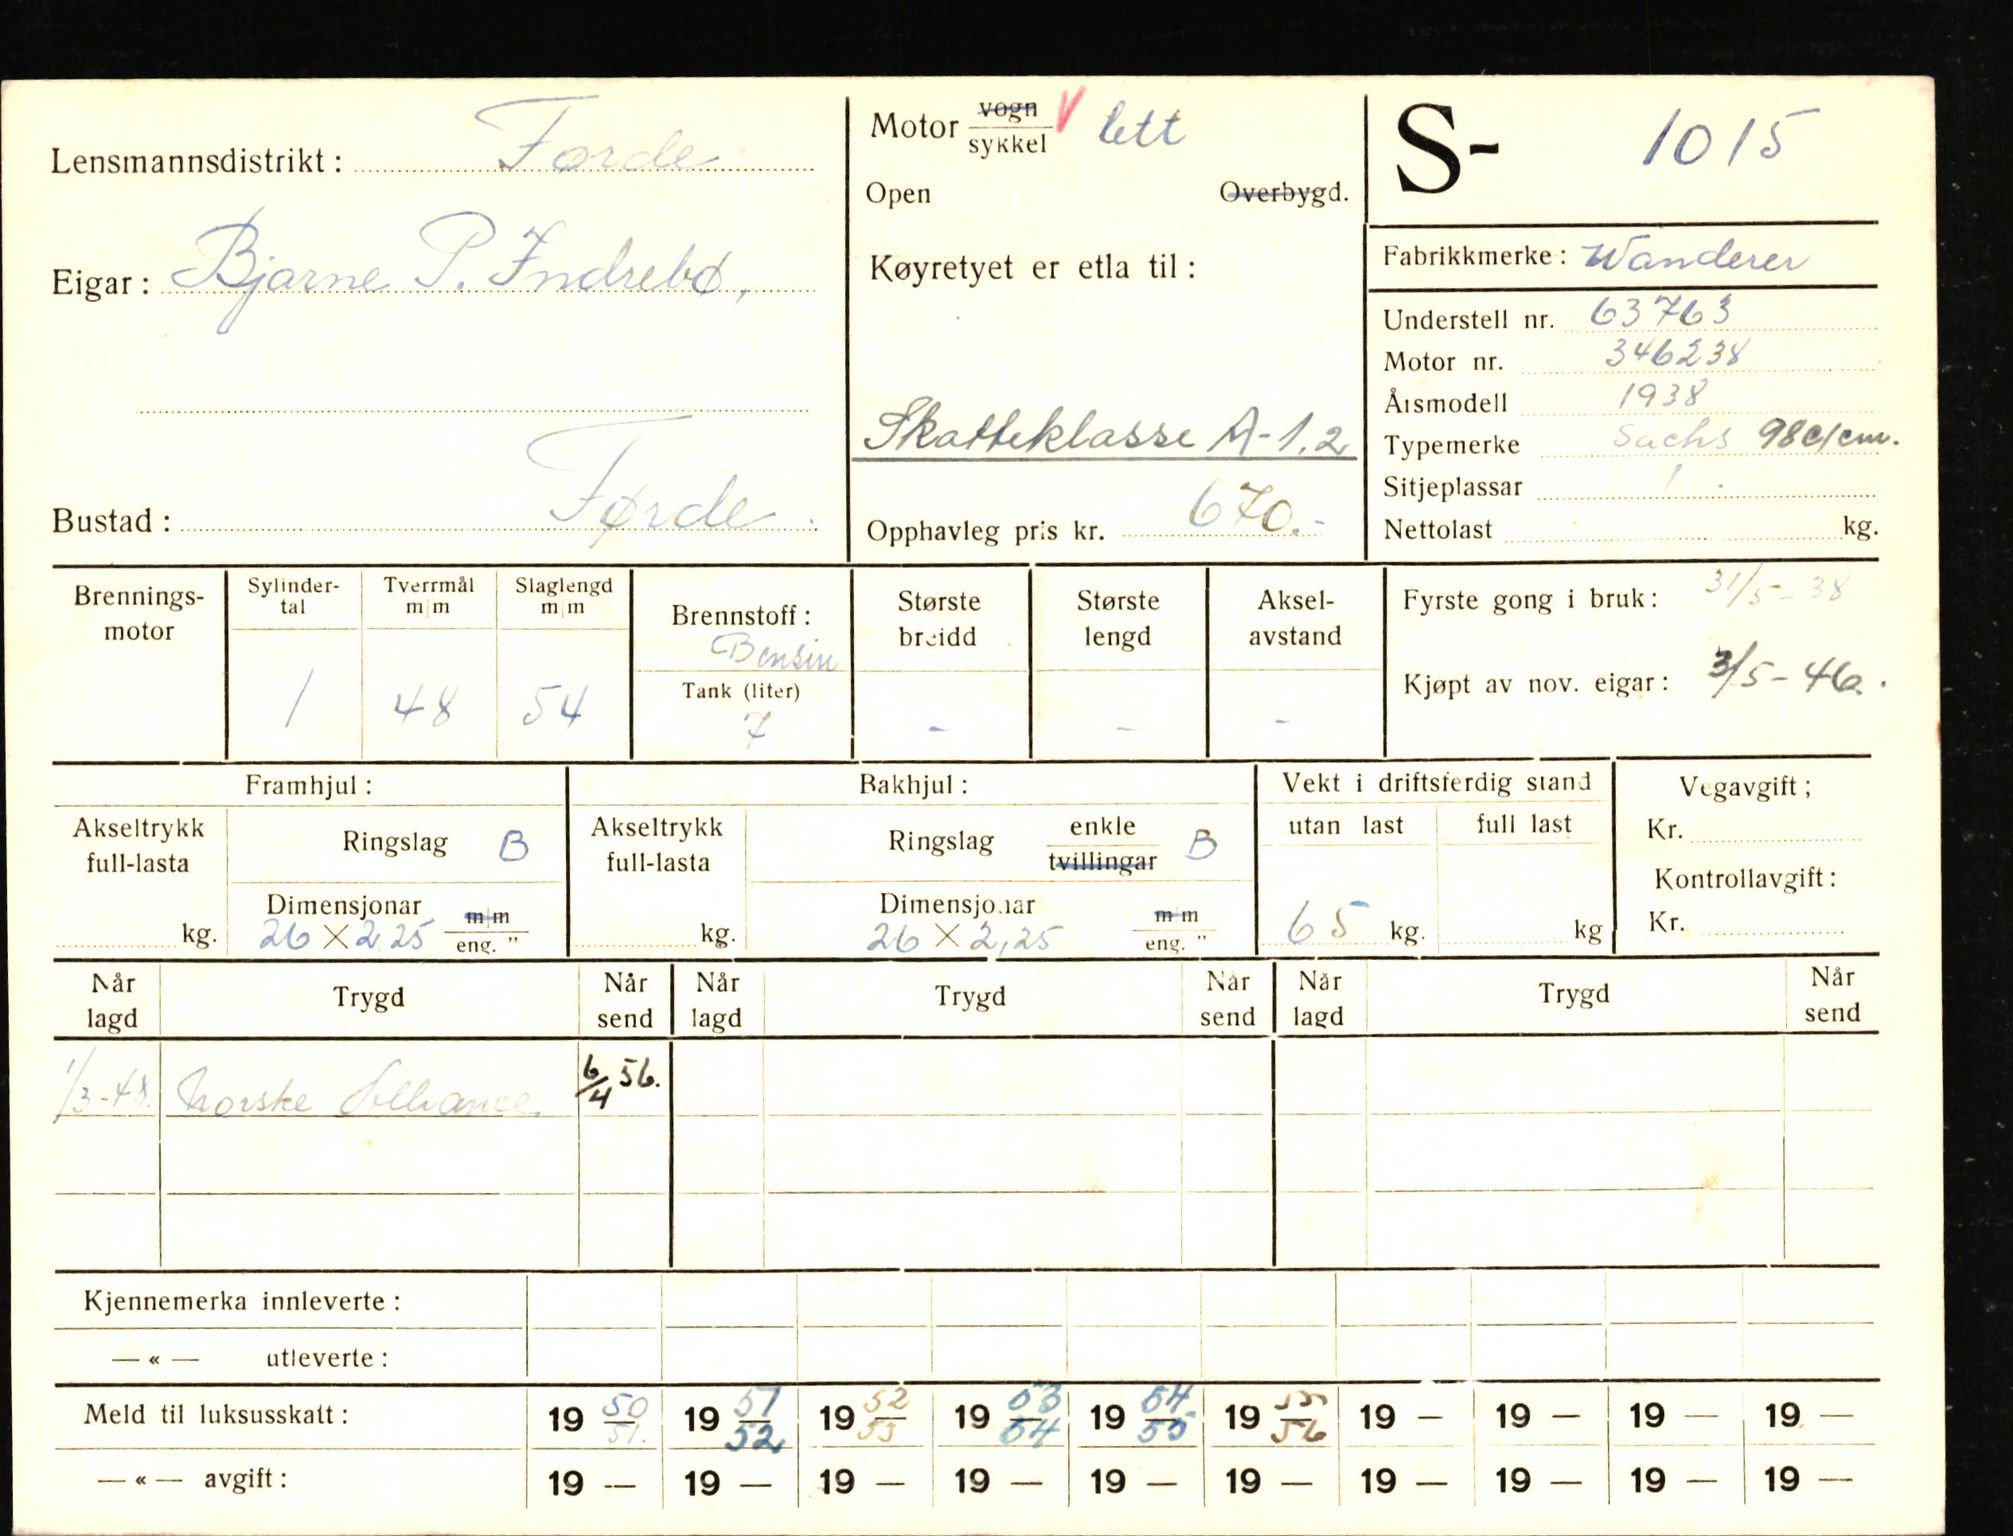 Lensmannsdistrikt: Førde
Eigar: Bjarne P. Indrebø,
Bustad: Førde.
Motor vogn/sykkel V lett
Open Overbygd.
Køyretyet er etla til:
Skatteklasse A-1.2
Opphavleg pris kr. 670.-
S- 1015
Fabrikkmerke: Wanderer
Understell nr. 63763
Motor nr. 346238
Årsmodell 1938
Typemerke Sachs 98c/cm.
Sitjeplassar 1
Nettolast kg.
Brennings-
motor
Sylinder-
tal
1
Tverrmål
m/m
48
Slaglengd
m/m
54
Brennstoff:
Bensin
Tank (liter)
7
Største
breidd
-
Største
lengd
-
Aksel-
avstand
-
Fyrste gong i bruk: 31/5-38
Kjøpt av nov. eigar: 3/5-46.
Framhjul:
Akseltrykk
full-lasta
kg.
Ringslag B
Dimensjonar m/m
26 X 2,25 eng. "
Bakhjul:
Akseltrykk
full-lasta
kg.
Ringslag enkle/tvillingar B
Dimensjonar m/m
26 X 2,25 eng. "
Vekt i driftsferdig stand
utan last full last
65 kg. kg
Vegavgift;
Kr.
Kontrollavgift:
Kr.
Når lagd Trygd Når send Når lagd Trygd Når send Når lagd Trygd Når send
1/3-48. Norske Alliance 6/4 56.
Kjennemerka innleverte:
— « — utleverte:
Meld til luksusskatt: 19 50/51. 19 51/52 19 52/53 19 53/54 19 54/55 19 55/56 19 — 19 — 19 — 19 —
— « — avgift: 19 — 19 — 19 — 19 — 19 — 19 — 19 — 19 — 19 — 19 —